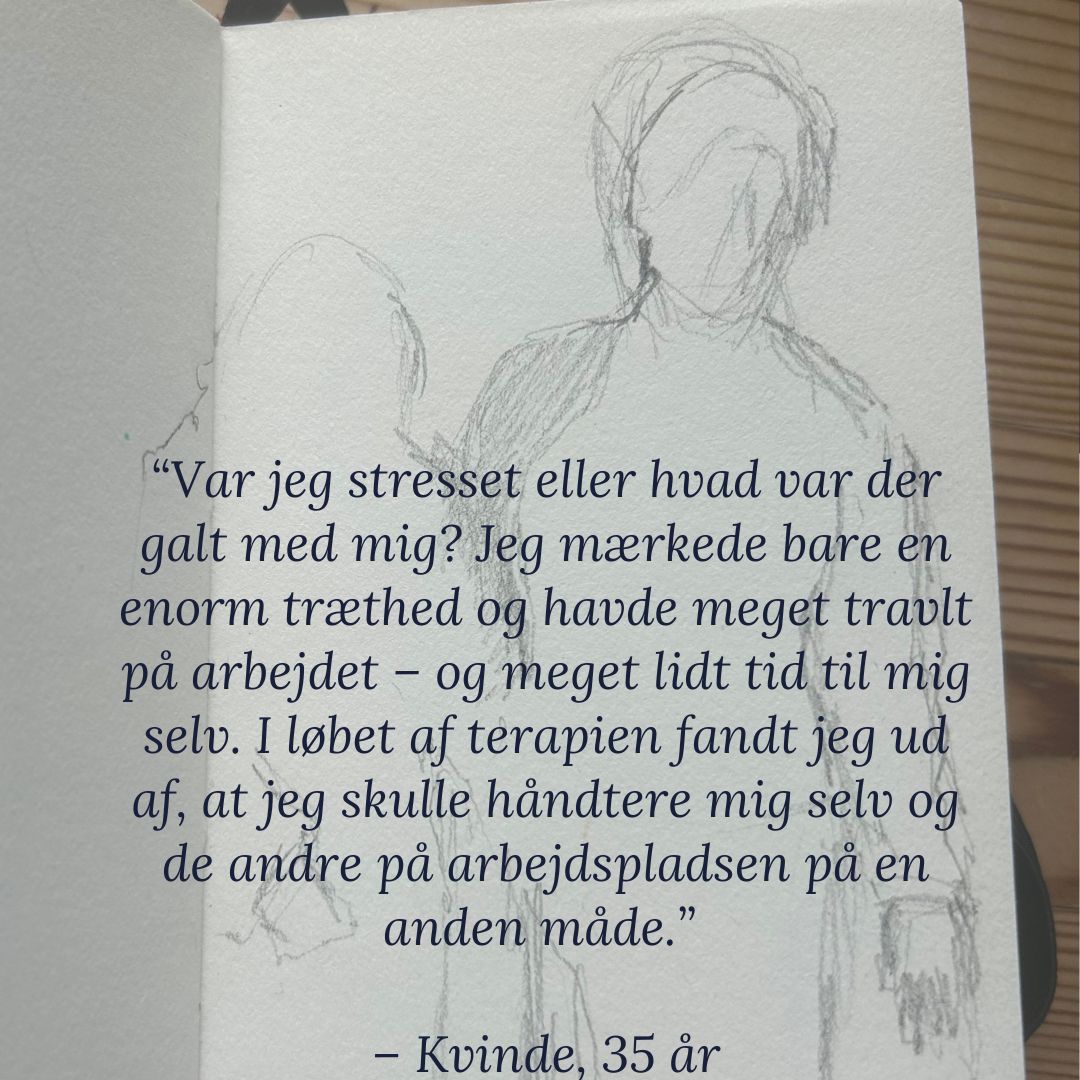 “Var jeg stresset eller hvad var der
galt med mig? Jeg mærkede bare en
enorm træthed og havde meget travlt
på arbejdet – og meget lidt tid til mig
selv. I løbet af terapien fandt jeg ud
af, at jeg skulle håndtere mig selv og
de andre på arbejdspladsen på en
anden måde.”
– Kvinde, 35 år